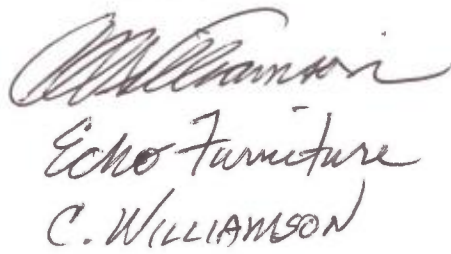 CWilliamson
Echo Furniture
C. WILLIAMSON